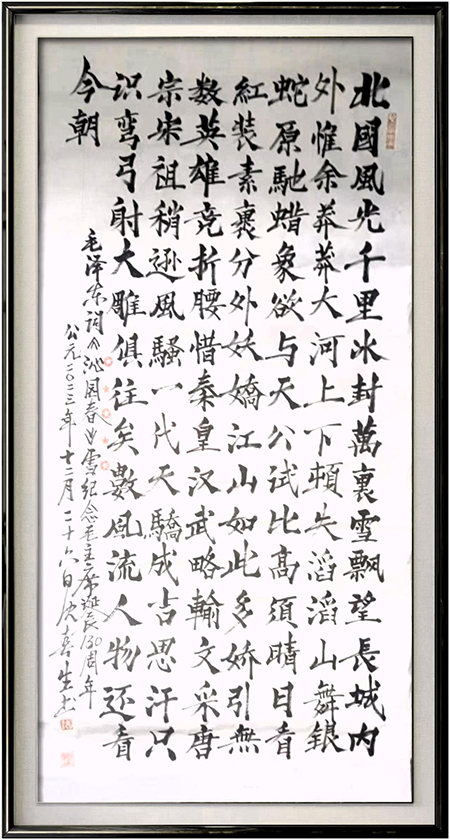 北國風光千里冰封萬裏雪飘望長城内
外惟余莽莽大河上下頓失滔滔山舞銀
蛇原馳蜡象欲与天公试比高須晴日看
紅装素裹分外妖嬌江山如此多娇引無
数英雄竞折腰惜秦皇汉武略輸文采唐
宗宋祖稍逊風騷一代天驕成吉思汗只
识弯弓射大雕俱往矣數風流人物还看
今朝
毛泽东词《沁园春》雪纪念毛主席诞辰130周年
公元二〇二三年十二月二十六日生书